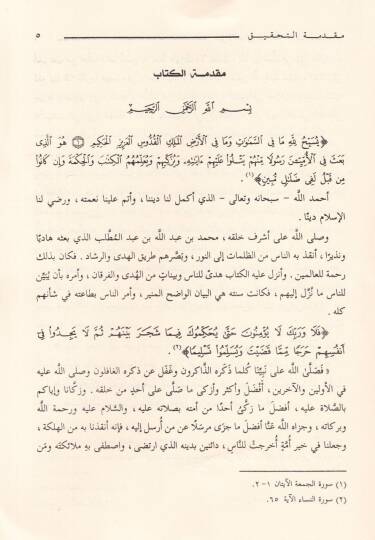 مقدمة التحقيق ٥
مقدمة الكتاب
بسم الله الرحمن الرحيم
﴿يُسَبِّحُ لِلَّهِ مَا فِي السَّمَٰوَٰتِ وَمَا فِي الْأَرْضِ الْمَلِكِ الْقُدُّوسِ الْعَزِيزِ الْحَكِيمِ ۝١ هُوَ الَّذِي
بَعَثَ فِي الْأُمِّيِّينَ رَسُولًا مِنْهُمْ يَتْلُوا عَلَيْهِمْ ءَايَٰتِهِ وَيُزَكِّيهِمْ وَيُعَلِّمُهُمُ الْكِتَٰبَ وَالْحِكْمَةَ وَإِن كَانُوا
مِن قَبْلُ لَفِي ضَلَٰلٍ مُّبِينٍ﴾(١).
أحمد اللَّه – سبحانه وتعالى – الذي أكمل لنا ديننا، وأتم علينا نعمته، ورضي لنا
الإسلام دينًا.
وصلى اللَّه على أشرف خلقه، محمد بن عبد اللَّه بن عبد المُطَّلب الذي بعثه هاديًا
ونذيرًا، أنقذ به الناس من الظلمات إلى النور، وبَصَّرهم طريق الهدى والرشاد. فكان بذلك
رحمة للعالمين. وأنزل عليه الكتاب هدىً للناس وبيناتٍ من الهُدى والفرقان، وأمره بأن يُبَيِّن
للناس ما نُزِّل إليهم، فكانت سنته هي البيان الواضح المنير، وأمر الناس بطاعته في شأنهم
كله.
﴿فَلَا وَرَبِّكَ لَا يُؤْمِنُونَ حَتَّىٰ يُحَكِّمُوكَ فِيمَا شَجَرَ بَيْنَهُمْ ثُمَّ لَا يَجِدُوا فِي
أَنفُسِهِمْ حَرَجًا مِّمَّا قَضَيْتَ وَيُسَلِّمُوا تَسْلِيمًا﴾(٢).
« فَصَلَّىٰ اللَّه على نَبِيِّنَا كُلما ذَكَره الذاكرون وغَفَل عن ذكره الغافلون وصلى اللَّه عليه
في الأولين والآخرين، أَفْضَلَ وأكثر وأزكى ما صَلَّى على أحدٍ من خلقه . وزكَّانا وإياكم
بالصَّلاة عليه، أفضلَ ما زكَّىٰ أحدًا من أمته بصلاته عليه، والسَّلام عليه ورحمة اللَّه
وبركاته، وجزاه اللَّه عنَّا أفضلَ ما جزى مرسَلًا عن من أُرسل إليه، فإنه أنقذنا به من الهلكة،
وجعلنا في خير أُمَّةٍ أُخرجتْ للنَّاسِ، دائنين بدينه الذي ارتضى، واصطفى بهِ ملائكته ومَن
(١) سورة الجمعة الآيتان ١–٢.
(٢) سورة النساء الآية ٦٥.